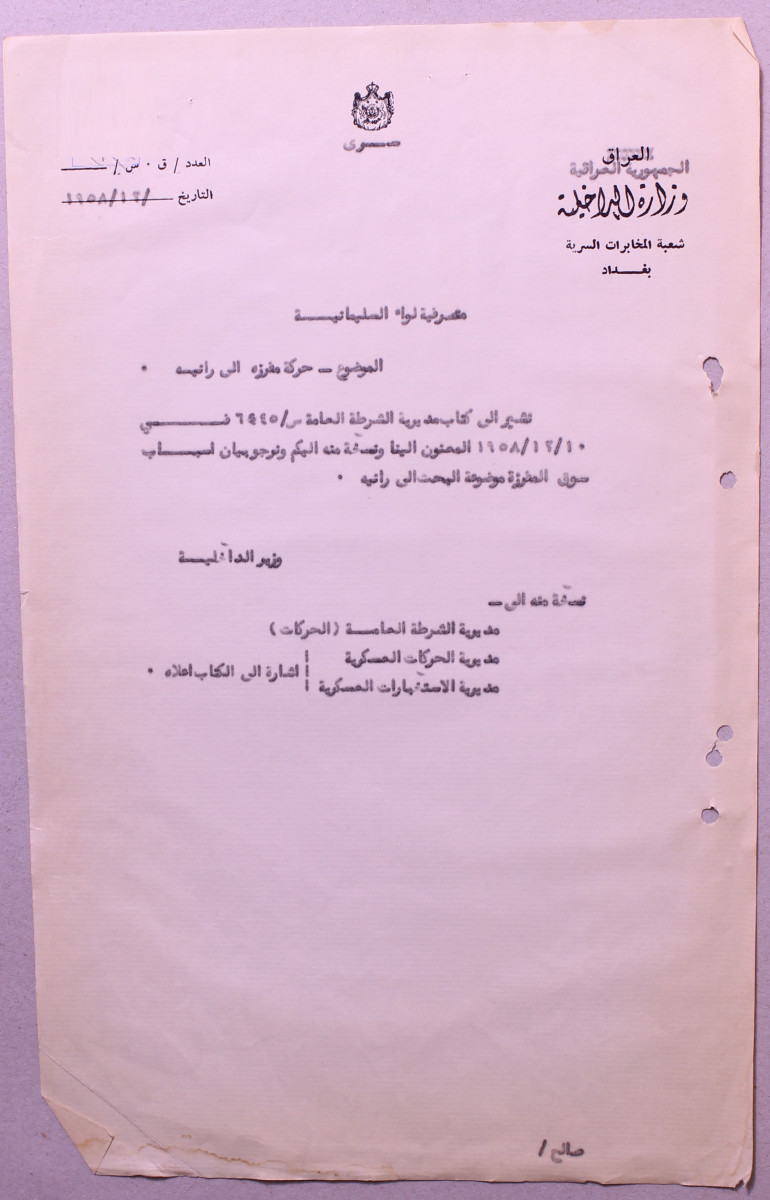 ســـرى
العراق
الجمهورية العراقية
وزارة الداخلية
شعبة المخابرات السرية
بغـــداد
العدد / ق ٠ س /
التاريخ /١٢/١٩٥٨
متصرفية لواء السليمانيـــة
الموضوع ـ حركة مفرزه الى رانيه ٠
نشير الى كتاب مديرية الشرطة العامة س/٦٤٤٥ فـــــي
١٩٥٨/١٢/١٠ المعنون الينا ونسخة منه اليكم ونرجو بيان اسبــاب
سوق المفرزة موضوعة البحث الى رانيه ٠
وزير الداخليـــة
نسخة منه الى ـ
مديرية الشرطة العامـــة (الحركات)
مديرية الحركات العسكرية
اشارة الى الكتاب اعلاه ٠
مديرية الاستخبارات العسكرية
صالح /